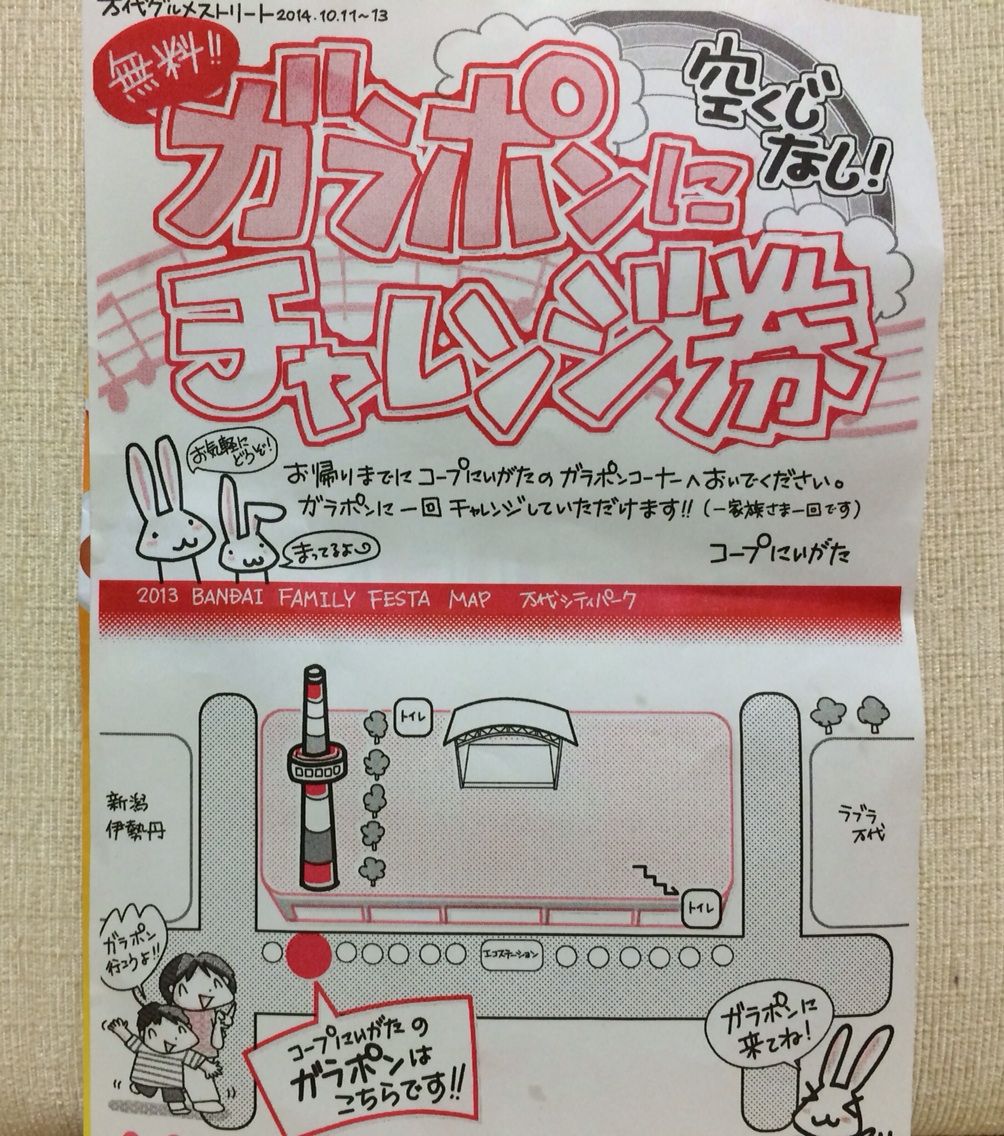 万代グルメストリート2014.10.11~13
無料!!
空くじ
なし!
ガラポンに
チャレンジ券
お気軽に
どうぞ!
お帰りまでにコープにいがたのガラポンコーナーへおいでください。
ガラポンに一回チャレンジしていただけます!!(一家族さま一回です)
まってるよ
コープにいがた
2013 BANDAI FAMILY FESTA MAP 万代シティパーク
トイレ
新潟
伊勢丹
ラブラ
万代
トイレ
エコステーション
ガラポン
行こうよ!!
コープにいがたの
ガラポンは
こちらです!!
ガラポンに
来てね!